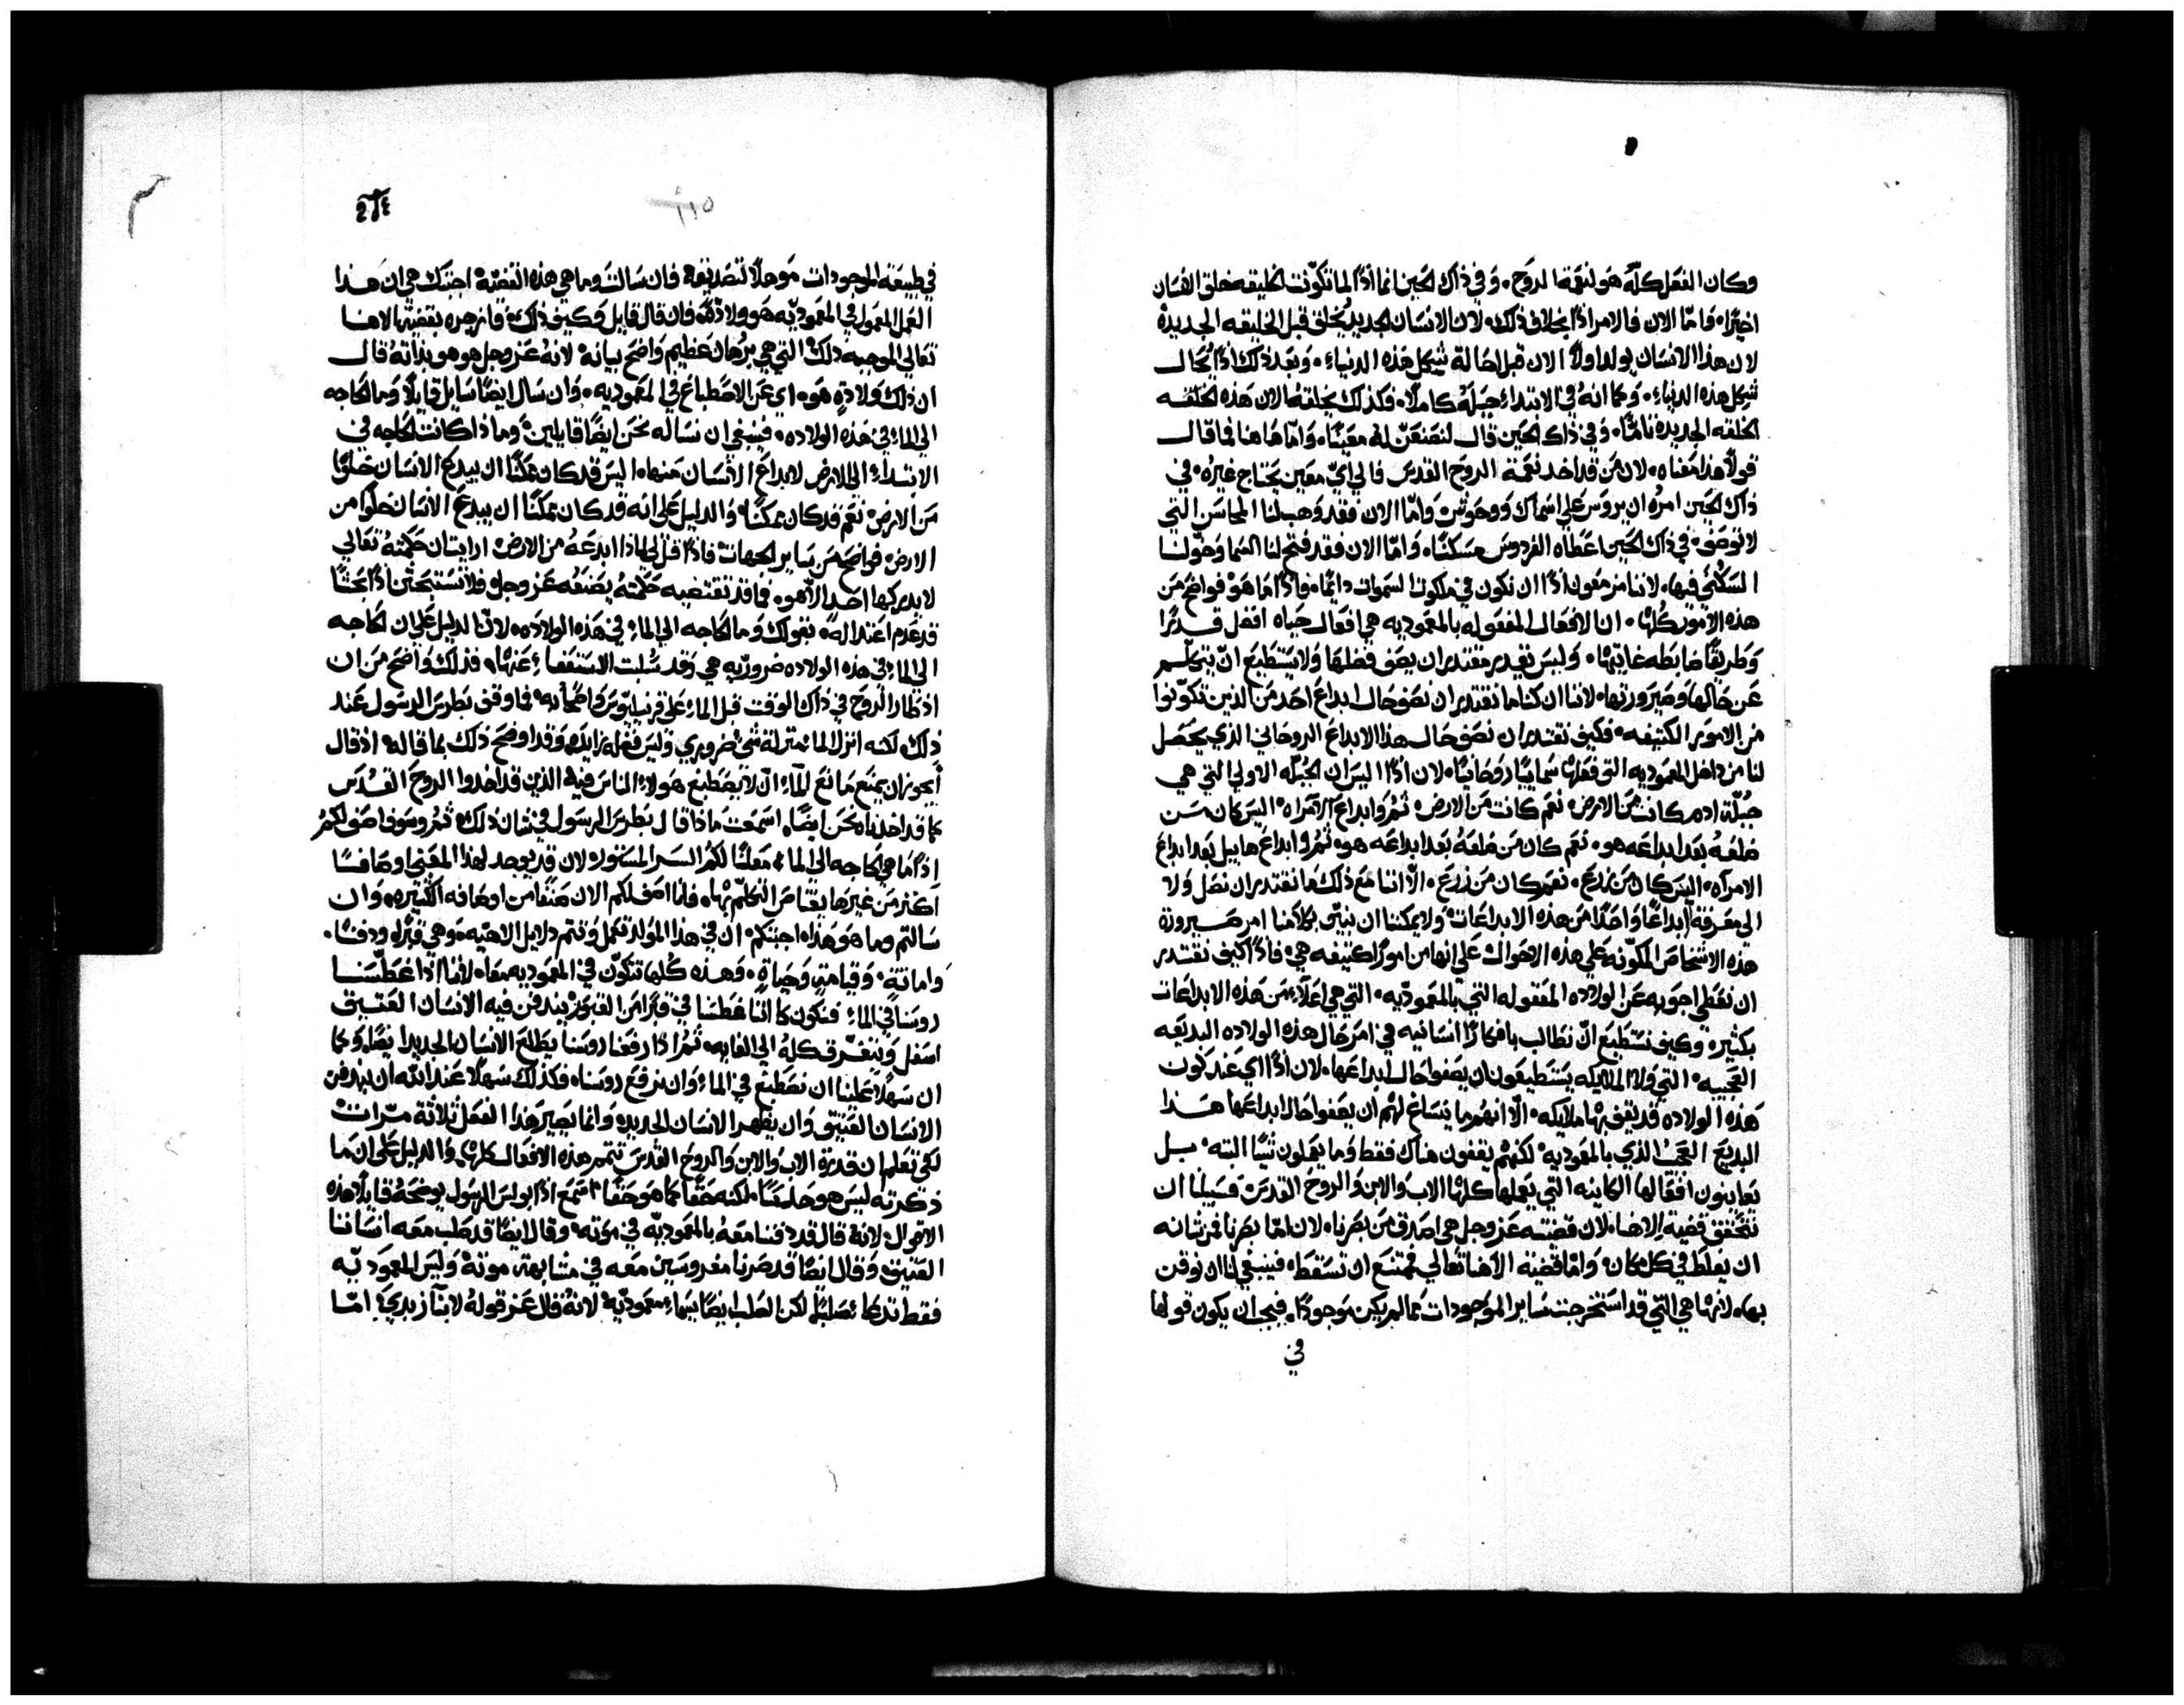 وكان الفعل كلّه هو لنعمة الروح. وفي ذاك الحين انما اذًا لما تكوّنت الخليقه خلق الانسان
اخيرًا. واما الان فالامر اذًا بخلاف ذلك. لان الانسان الجديد يُخلق قبل الخليقه الجديدة
لان هذا الانسان يولد اولاً الان قبل احالة شكل هذه الدنياء. وبعد ذلك اذًا يُحال
شكل هذه الدنياء. وكما انهُ في الابتداء جبلهُ كاملاً. فكذلك يخلقهُ الان هذه الخلقه
الخلقه الجديدة تامًا. وفي ذاك الحين قال لنصنعنّ لهُ معينًا. واما هاهنا فما قال
قولاً هذا معناه. لان من قد اخد نعمة الروح القدس فالي ايّ معين يحتاج غيرُه. في
ذاك الحين امرهُ ان يروس علي اسماك ووحوش واما الان فقد وهب لنا المحاسن التي
لا توصف. في ذاك الحين اعطاه الفردوس مسكنًا. واما الان فقد فتح لنا السما وخوّلنا
السكني فيها. لاننا مزمعون اذًا ان نكون في ملكوت السموات دايمًا. فاذًا ما هو فواضح من
هذه الامور كلها. ان الافعال المفعوله بالمعموديه هي افعال حياه افضل قدرًا
وطريقًا ضابطه غايتها. وليس يقدير مقتدر ان يصف فضلها ولا يستطيع ان يتكلّم
عن حالها وصيرورتها. لاننا ان كنا ما نقتدر ان نصف حال ابداع احد من الذين تكوّنوا
من الامور الكتيفه. فكيف نقتدر ان نصف حال هذا الابداع الروحاني الذي يحصل
لنا من داخل المعموديه التي فعلها سمايًا روحانيًا. لان اذًا اليس ان الجُبلّه الاولي التي هي
جُبلّة ادم كانت من الارض. نعم كانت من الارض. ثمُر وابداع الامراه. اليس كان من
ضلعهُ بعد ابداعه هو. نعم كان من ضلعهُ بعد ابداعه هو. ثمُر وابداع هابيل بعد ابداع
الامراه. اليس كان من زرع. نعم كان من زرع. الّا اننا مع ذلك ما نقتدر ان نصل ولا
الي معرفة ابداعًا واحدًا من هذه الابداعات. ولا يمكننا ان نبيّن بكلامنا امر صيرورة
هذه الاشخاص المكوّنه علي هذه الاحوال علي انها من امور كتيفه هي. فاذًا كيف نقتدر
ان نعطي اجوبه عن الولاده المعقوله التي بالمعموديّه. التي هي اعلاء من هذه الابداعات
بكثيره وكيف نستطيع ان نطالب بافكارًا انسانيه في امر حال هذه الولاده البديعه
العجيبه. التي ولا الملايكه يستطيعون ان يصفوا حال ابداعها. لان اذًا اي عند كون
هذه الولاده قد يقف بها ملايكه. الّا انهم ما يتساغ لهم ان يصفوا حال ابداعها هذا
البديع العجيب الذي بالمعموديه. لكنهم يقفون هناك فقط وما يعملون شيًا البته. بل
يعاينون افعالها الكاينه التي يعملها كلها الاب والابن والروح القدس فسبيلنا ان
نتحقق قضية الاهنا. لان قضيته عز وجل هي اصدق من بصرنا. لان اما بصرنا فمن شانه
ان يغلط في كل مكان. واما قضية الاهنا تعالي فممتنع ان تسقط. فينبغي لنا ان نوقن
بها. لانها هي التي قد استخرجت ساير الموجودات مما لم يكن موجودًا. فيجب ان يكون قولها
في
١١٥
في طبيعة الموجودات موهلاً لتصديقه فان سالت وما هي هذه القضيّة اجبتك هي ان هذا
العمل المعمول في المعموديّه هو ولادة. فان قال قايل وكيف ذلك. فازجره بقضية الاهنا
تعالي الموجبه ذلك. التي هي برهان عظيم واضح بيانه. لانه عز وجل هو هو بذاته قال
ان ذلك ولادةٍ هو. اي عن الاصطباغ في المعموديه. وان سال ايضًا سايل قايلاً وما الحاجه
الي الماء في هذه الولاده. فينبغي ان نساله نحن ايضًا قايلين. وماذا كانت الحاجه في
الابتداء الي الارض لابداع الانسان منها. اليس قد كان ممكنًا ان يبدع الانسان خلوًا
من الارض. نعم قد كان ممكنًا. والدليل علي انه قد كان ممكنًا ان يبدع الانسان خلوا من
الارض. فواضح من ساير الجهات. فاذًا قل لي لماذا ابدعهُ من الارض. ارايت ان حكمتهُ تعالي
لا يدركها احد الّا هو. فما قد تقتضيه حكمتهُ يصنعُه عز وجل. فلا تستبحثن اذًا بحثًا
قد عدم اعتداله. بقولك وما الحاجه الي الماء في هذه الولاده. لان الدليل علي ان الحاجه
الي الماء في هذه الولاده ضروريّه هي وقد سُلبت الاستعفاء عنها. فذلك واضح من ان
اذ طار الروح في ذاك الوقت قبل الماء علي قرنيليوس واصحابه. فما وقف بطرس الرسول عند
ذلك. لكنه انزل الما بمنزلة شي ضروري وليس فعله زايده. وقد اوضح ذلك بما قاله. اذ قال
أيجوز ان يمنع مانع الماء ان لا يصطبغ هولاء الناس فيه الذين قد اخدوا الروح القدس
كما قد اخدناه نحن ايضًا. اسمعت ماذا قال بطرس الرسول في شان ذلك. ثمُر وسوف اصف لكم
اذًا ما هي الحاجه الي الماء. معلنًا لكم السر المستور. لان قد يوجد لهذا المعني اوصافًا
اكثر من غيرها يعتاص التكلّم بها. فانا اصف لكم الان صنفًا من اوصافه الكثيره. وان
سالتم وما هو هذا. اجبتكم. ان في هذا المولد تعمل وتتم دلايل الاهيه. وهي قبرًا ودفنًا.
واماتةٍ. وقيامةٍ وحياةٍ. وهذه كلها تتكوّن في المعموديه معا. لاننا اذا غطّسنا
روسنا في الماء. فنكون كاننا غطسنا في قبرًا من القبور. يندفن فيه الانسان العتيق
اسفل ويتغرّق كلهُ الي الغايه. ثمُر اذا رفعنا روسنا يطلع الانسان الجديد ايضًا. وكما
ان سهلاً علينا ان نصطبغ في الماء وان نرفع روسنا. فكذلك سهلاً عند الله ان يدفن
الانسان العتيق وان يظهر الانسان الجديد. وانما يصير هذا الفعل ثلاثة مرّات
لكي تعلم ان قدرة الاب والابن والروح القدس تتمم هذه الافعال كلها. والدليل علي ان ما
ذكرته ليس هو حدسًا. لكنه حقًا كما هو حقًا. اسمع اذًا بولس الرسول يوضحهُ قايلاً هذه
الاقوال. لانهُ قال قد دفنا معهُ بالمعموديّه في موته. وقال ايضًا قد صلب معه انساننا
العتيق. وقال ايضًا قد صرنا مغروسين معه في مشابهة موتهُ. وليس المعموديّه
فقط تدعا صليبًا. لكن الصلب ايضًا يسماء معموديّة. لانهُ قال عز قولهُ لابنا زبدي. اما